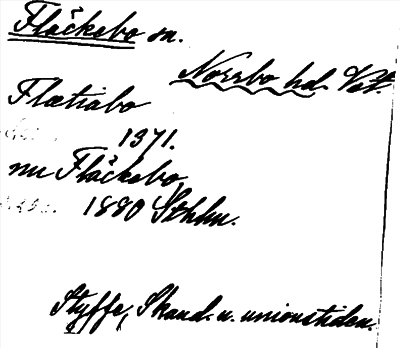 Fläckebo sn.
Norrbo hd. Vst.
Flætiabo
1371.
nu Fläckebo
1880 Sthlm.
Styffe, Skand. u. unionstiden.